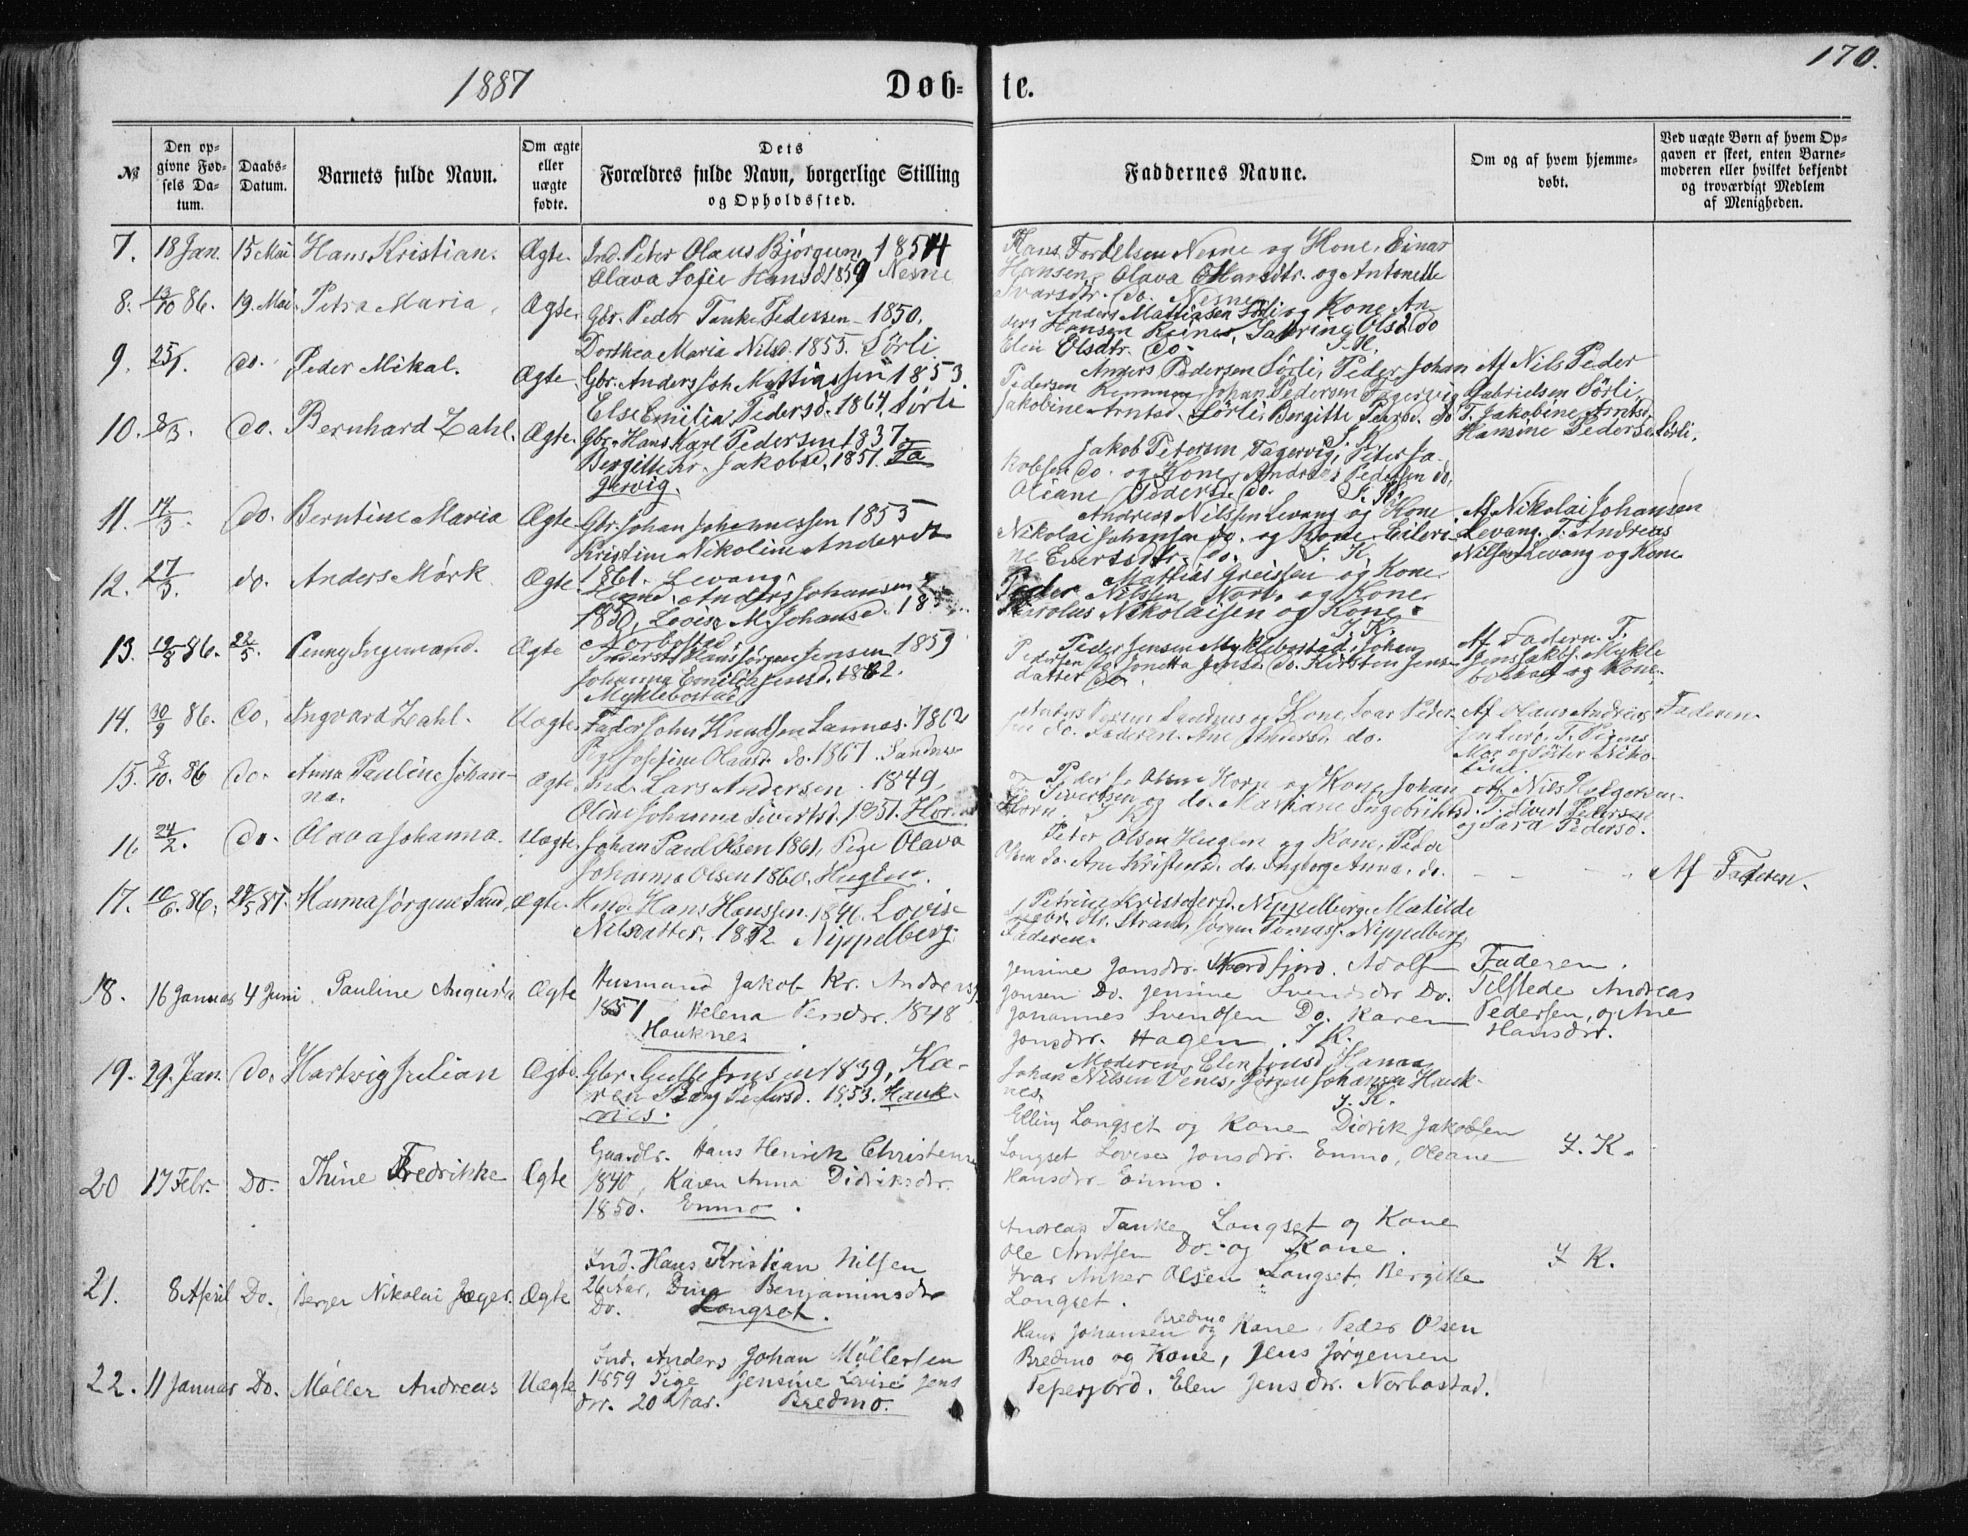 1887
Døb-
te.
170.
№
Den op-
givne Fød-
sels Da-
tum.
Daabs-
Datum.
Barnets fulde Navn.
Om ægte
eller
uægte
fødte.
Dets
Forældres fulde Navn, borgerlige Stilling
og Opholdssted.
Faddernes Navne.
Om og af hvem hjemme-
døbt.
Ved uægte Børn af hvem Op-
gaven er skeet, enten Barne-
moderen eller hvilket bekjendt
og troværdigt Medlem
af Menigheden.
7. 18 Jan. 15 Mai Hans Kristian. Ægte. Ind. Peter Olaus Bjørgum, 1854
Olava Sofie Hansd. 1859 Nesne
Hans Nesne og Kone, Einar
Hansen, Olava Hansdtr. og Antonette
Ivarsdtr. do. Nesne
8. 86. 19. Mai Petra Maria, Ægte. Gbr. Peder Tanke Pedersen 1850.
Dorthea Maria Nilsd. 1855. Sörli
Anders Mattiasen Sörli og Kone An
ders Hansen Sabrine Olsd. do
Elen Olsdtr. do. I. K.
9. 25/1. do. Peder Mikal. Ægte. Gbr. Anders Joh. Mattiassen 1853.
Else Emilia Pedersd. 1864. Sörli
Anders Pedersen Sörli, Peder Johan
Pedersen Johan Pedersen Fagervig
Jakobine Arntsd. Sörli, Bergitte do
Af Nils Peder
Gabrielsen Sörli,
T. Jakobine Arntsd.
Hansine Pedersd. Sörli.
10. 8/3. do. Bernhard Zahl. Ægte. Gbr. Hans Karl Pedersen 1837
Bergitte Jakobsd. 1851. Fa
gervig.
Jakob Petersen Fagervig, Peter Ja-
kobsen do. og Kone, Andreas Pedersen do,
Oliane Pedersd. do. I. K.
11. 14/3. do. Berntine Maria Ægte. Gbr. Johan Johannessen 1853
Kristine Nikoline Andersd
1861. Levang.
Andreas Nilssen Levang og Kone
Nikolai Johansen do. og Kone, Eileri-
ne Evertsdtr. do. I. K.
Af Nikolai Johansen
Levang. T. Andreas
Nilsen Levang og Kone
12. 27/3. do. Anders Mørk Ægte Anders Johansen
1850, Lovise M. Johansd.
Mattias Greissen og Kone
Peder Nilssen Norb. og Kone
Karolus Nikolaisen og Kone.
I. K.
13. 19/8 86. 22/5. Penny Ingemand. Ægte Hans Jørgen Jensen 1859
Johanna Emilie Jensd. 1862.
Myklebostad
Peder Jensen Myklebostad, Johan
Pedersen do Jonetta Jensd. do. Kirsten Jens-
datter do.
Af Faderen. T.
Jens Jakobs. Mykle
bostad og Kone.
14. 30/9 86. do. Ingvard Zahl. Uægte. Fader John Knudsen Sannes 1862
Pige Josefine Olausd. do. 1867. Sandnes
Sandnes og Kone, Ivar Peder-
sen do. Faderen. Ane do.
Af Olaus Andreas
Faderen.
15. 8/10. 86 do. Anna Pauline Johan-
na. Ægte Ind. Lars Andersen 1849,
Oline Johanna Sivertsd. 1851. Horn
Peder J. Olsen Horn og Kone, Johan
Sivertsen og do. Mariane Ingebrigtsd.
Horn. I. K.
Af Nils Holgersen.
T. Sivert Pedersen
og Sara Pedersd.
16 24/2. do. Olava Johanna. Uægte. Johan Paul Olsen 1861, Pige Olava
Johanna Olsen 1860. Huglen.
Peter Olsen Huglen og Kone, Peder
Olsen do. Ane Kristensd. do. Ingborg Anna. do.
Af Faderen.
17. 10/6. 86. 29/5 87. Hanna Jørgine Ægte. Hans Hanssen. Lovise
Nilsdatter. 1852 Nippelberg.
Petrine Kristofersd. Nippelberg. Matilde
Strand, Jørgen Tomass. Nippelberg,
Faderen.
18. 16 Januar 4 Juni Pauline Augusta Ægte Husmand Jakob Kr. Anders
1851 Helena Persdr. 1848
Hauknes
Jensine Jonsdr. Nordfjord. Adolf
Jonsen Do. Jensine Svendsdr Do.
Johannes Svendsen Do. Karen
Jonsdr. Hagen. I K.
Faderen.
Tilstede Andreas
Pedersen, og Ane
Hansdr.
19. 29. Jan. do. Hartvig Julian Ægte. Gbr. Jensen 1839, Ka-
ren Berg Pedersd. 1853. Hauk-
nes.
Moderen, Elen Jonsd. Hanna
Johan Nilsen Venes, Jørgen Johansen Hauk-
nes. I. K.
20 17 Febr. Do. Thine Fredrikke Ægte Gaardbr. Hans Henrik Christensen
1840, Karen Anna Didriksdr.
1850. Enmo.
Elling Langset og Kone Didrik Jakobsen
Langset Lovise Jonsdr. Enmo, Oleane
Hansdr. Enmo.
I. K.
21. 8 April Do. Berger Nikolai Jæger. Ægte Ind. Hans Kristian Nilsen
26 Aar, Dina Benjaminsdr
Do. Langset.
Andreas Tanke Langset og Kone
Ole Arntsen Do. og Kone.
Ivar Anker Olsen Langset, Bergitte
Langset.
I K.
22. 11 Januar Do. Møller Andreas Uægte Ind. Anders Johan Møllersen
1859 Pige Jensine Lovise Jens
drr. 20 Aar. Bredmo.
Hans Johansen Bredmo og Kone Peder Olsen
Bredmo og Kone, Jens Jørgensen
Elen Jensdr. Norbostad.